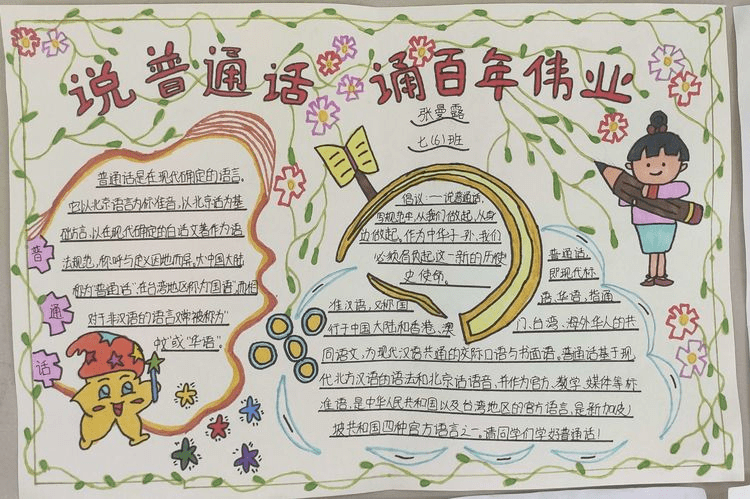 说普通话 诵百年伟业
张曼露
七(6)班
普通话
普通话是在现代确定的语言。
它以北京语言为标准音，以北京话为基
础方言，以在现代确定的白话文著作为语
法规范，称呼与定义因地而异。大中国大陆
称为"普通话"，在台湾地区称为"国语"，而相
对于非汉语的语言又常被称为"
中文"或"华语"。
倡议：一说普通话，
写规范字，从我们做起，从身
边做起。作为中华子孙，我们
必须肩负起这一新的历使
史使命。
普通话，
即现代标
准汉语，又称国语、华语，指通
行于中国大陆和香港、澳门、台湾、海外华人的共
同语文，为现代汉语共通的交际口语与书面语。普通话基于现
代北方汉语的语法和北京话语音，并作为官方、教学、媒体等标
准语，是中华人民共和国以及台湾地区的官方语言，是新加及)
坡共和国四种官方语言之一。请同学们学好普通话！